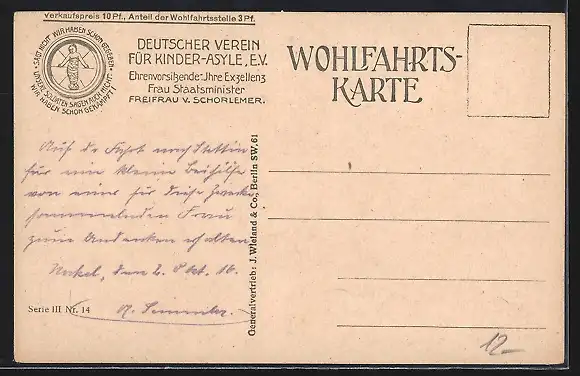 Verkaufspreis 10 Pf., Anteil der Wohlfahrtsstelle 3 Pf.
SAGT NICHT WIR HABEN SCHON GEGEBEN
UNSERE SOLDATEN SAGEN AUCH NICHT:
WIR HABEN SCHON GEKÄMPFT!
DEUTSCHER VEREIN
FÜR KINDER-ASYLE, E.V.
Ehrenvorsitzende: Ihre Exzellenz
Frau Staatsminister
FREIFRAU V. SCHORLEMER.
WOHLFAHRTS-
KARTE
Auf der Fahrt nach Stettin
für eine kleine Beihilfe
von einer für diese Zwecke
sammelnden Frau
zum Andenken erhalten
den 2. Okt. 16.
Serie III Nr. 14
Generalvertrieb: J. Wieland & Co., Berlin SW. 61
12-